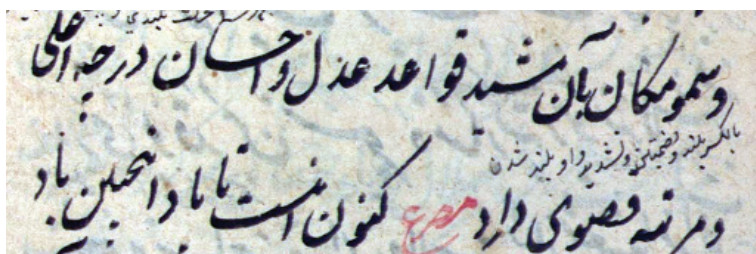 و سمو مکان بآن مشید قواعد عدل و احسان درجه اعلی
بالکسر بلند و بضمتین و تشدید واو بلند شدن
و مرتبه قصوی دارد مصرع کنون اینست تا باد اینچنین باد